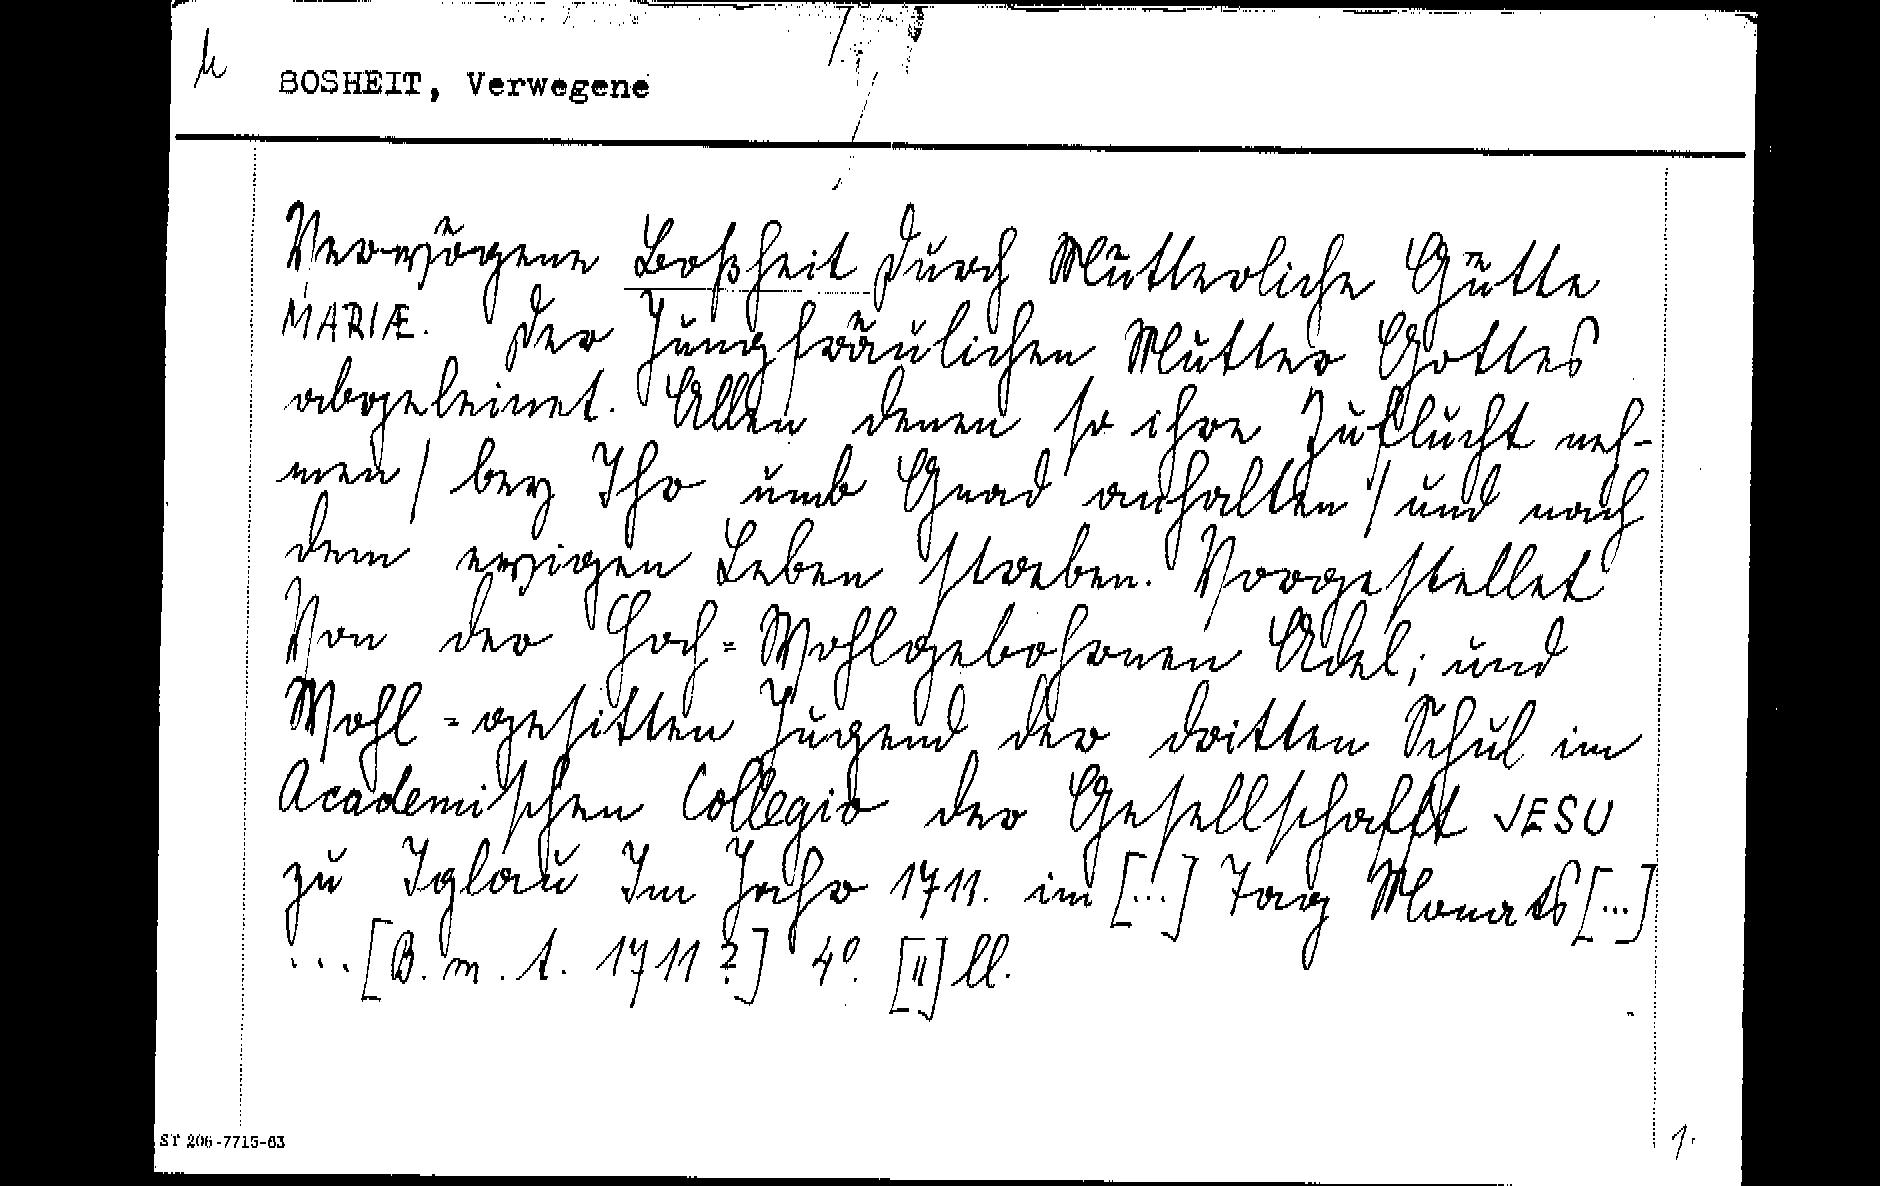 BOSHEIT, Verwegene
Verwögene Boßheit Durch Mütterliche Gütte
MARIÆ. Der Jungfräulichen Mutter Gottes
abgeleinet. Allen denen so ihre Zuflucht neh-
men / bey Ihr umb Gnad anhalten / und nach
dem ewigen Leben streben. Vorgestellet
Von der Hoch-Wohlgebohrnen Adel; und
Wohl-gesitten Jugend der dritten Schul im
Academischen Collegio der Gesellschafft JESU
zu Iglau Im Jahr 1711. im [...] Tag Monats [...]
... [B.m.t. 1711?] 4°. [II] ll.
ST 206-7715-63
1.